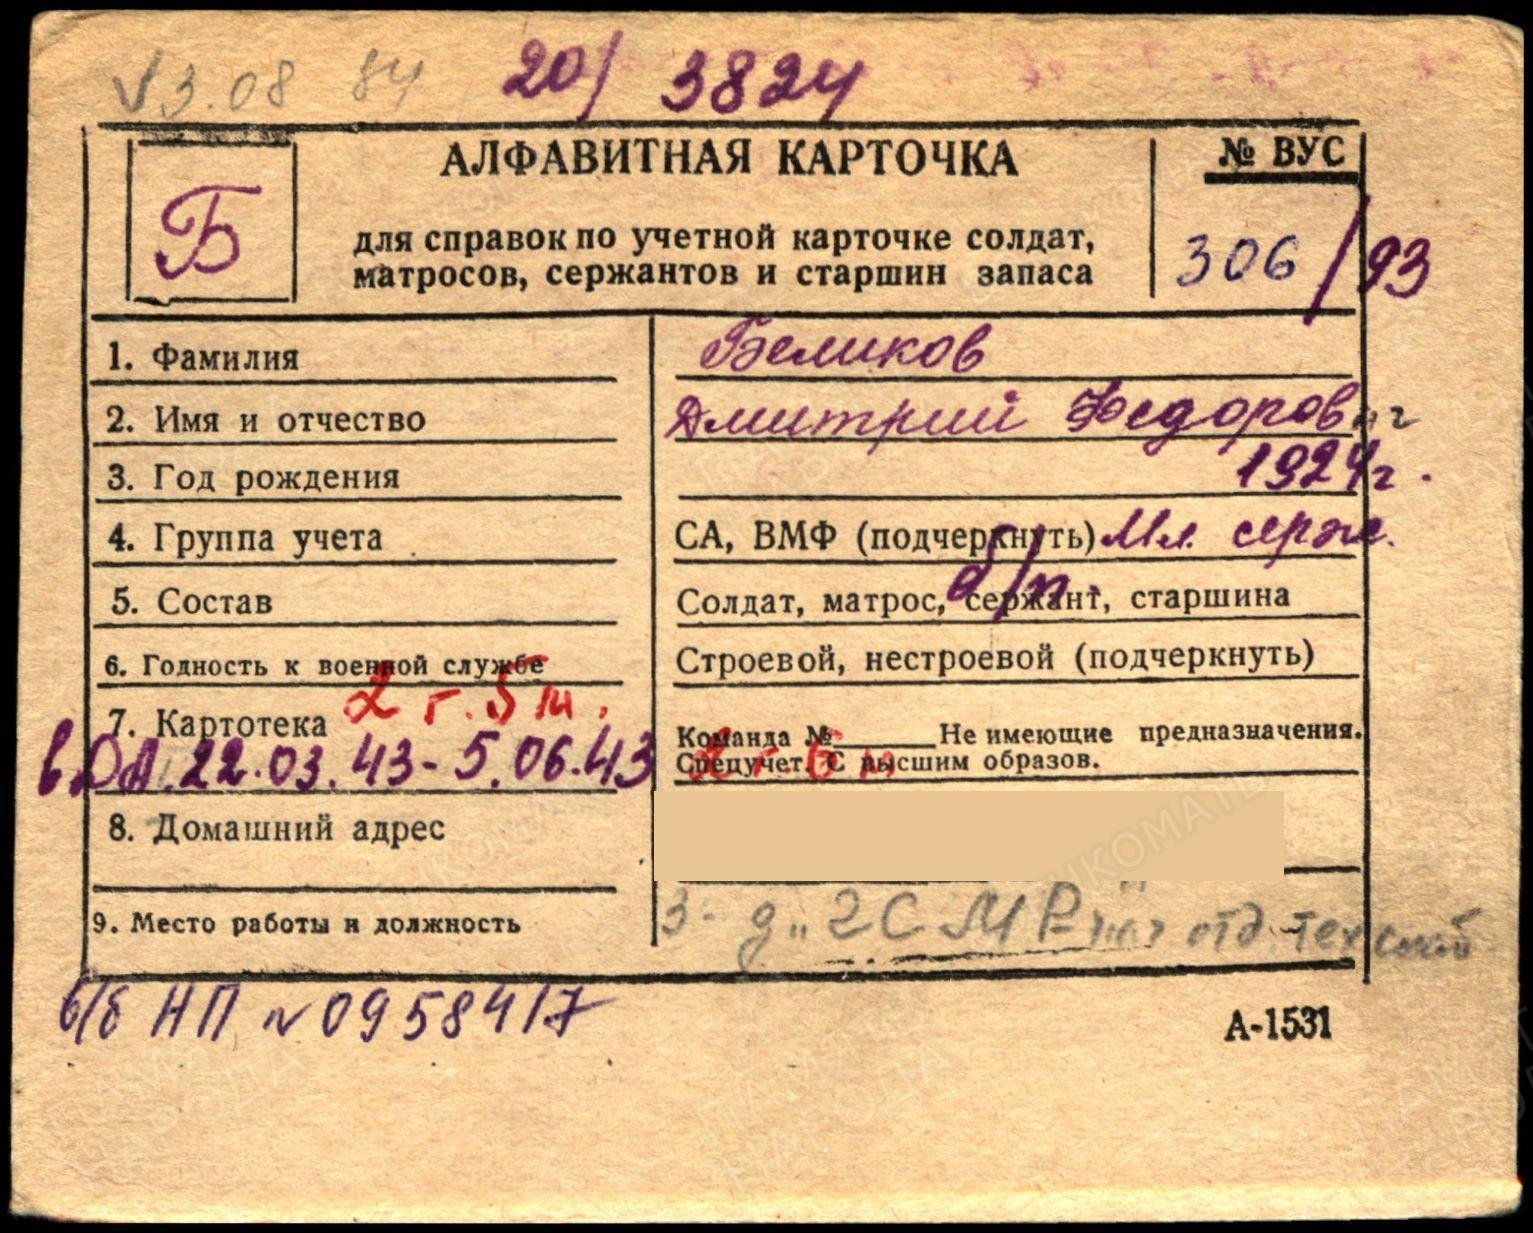 3.08 84 20/ 3824
Б
АЛФАВИТНАЯ КАРТОЧКА
для справок по учетной карточке солдат,
матросов, сержантов и старшин запаса
№ ВУС
306/93
1. Фамилия Беликов
2. Имя и отчество Дмитрий Федорович
3. Год рождения 1924г.
4. Группа учета СА, ВМФ (подчеркнуть) Мл. серж.
б/п.
5. Состав Солдат, матрос, сержант, старшина
6. Годность к военной службе Строевой, нестроевой (подчеркнуть)
2 г. 5 м.
7. Картотека Команда № Не имеющие предназначения.
в ДА. 22.03.43-5.06.43 Спецучет. С высшим образов.
2 г. 6 м
8. Домашний адрес
9. Место работы и должность 3-д отд. тех
в/б НП № 0958417
А-1531
ПАМЯТЬ
НАРОДА
ПАМЯТЬ
НАРОДА